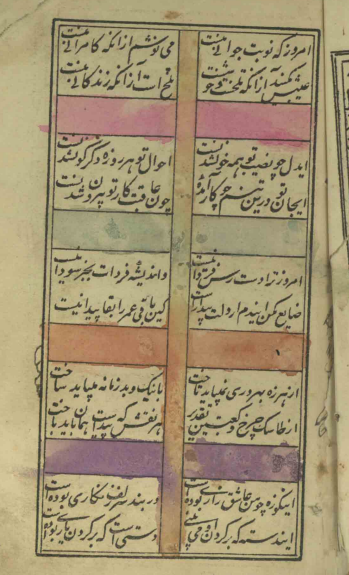 امروز که نوبت جوانی منست می نوشم از آنکه کامرانی منست
عیبش مکنید از آنکه تلخست و خوشست تلخ است از آنکه زندگانی منست
ایدل چو نصیب تو همه خون شدنست احوال تو هر روزه دگرگون شدنست
ایجان تو درین تنم چه کار آمده چون عاقبت کار تو بیرون شدنست
امروز ترا دست رس فردا نیست و اندیشه فردات بجز سودا نیست
ضایع مکن ایندم ار دلت بیدارست کین باقی عمر را بقا پیدا نیست
از هرزه بهر دری نمیباید تاخت با نیک و بد زمانه میباید ساخت
از طاسک چرخ و کعبتین تقدیر هر نقش که پیداست همان باید باخت
اینکوزه چو من عاشق زاری بوده است در بند سر زلف نگاری بوده است
ایندسته که بر گردن او می بینی دستی است که بر گردن یاری بوده است